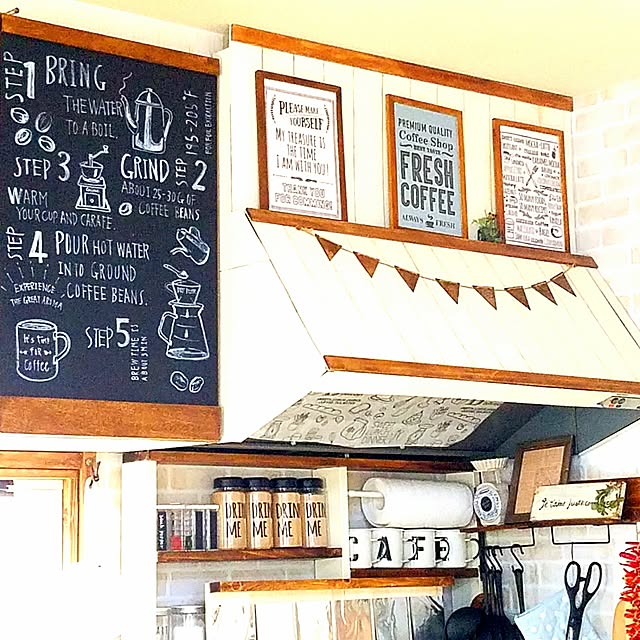 STEP 1 BRING
THE WATER
TO A BOIL.
195-205°F
STEP 3
WARM
YOUR CUP AND CARAFE.
STEP 2
GRIND
ABOUT 25-30G OF
COFFEE BEANS
STEP 4 POUR HOT WATER
INTO GROUND
COFFEE BEANS.
EXPERIENCE
THE GREAT AROMA
It's time
FOR
Coffee
STEP 5
BREW TIME IS
ABOUT 3 MIN
PLEASE MAKE
YOURSELF
MY TREASURE IS
THE TIME
I AM WITH YOU!
THANK YOU
FOR COMING!
PREMIUM QUALITY
Coffee Shop
BEST TASTE
FRESH
COFFEE
ALWAYS FRESH
DRINK
ME
DRINK
ME
DRINK
ME
DRINK
ME
CAFE
Je t'aime